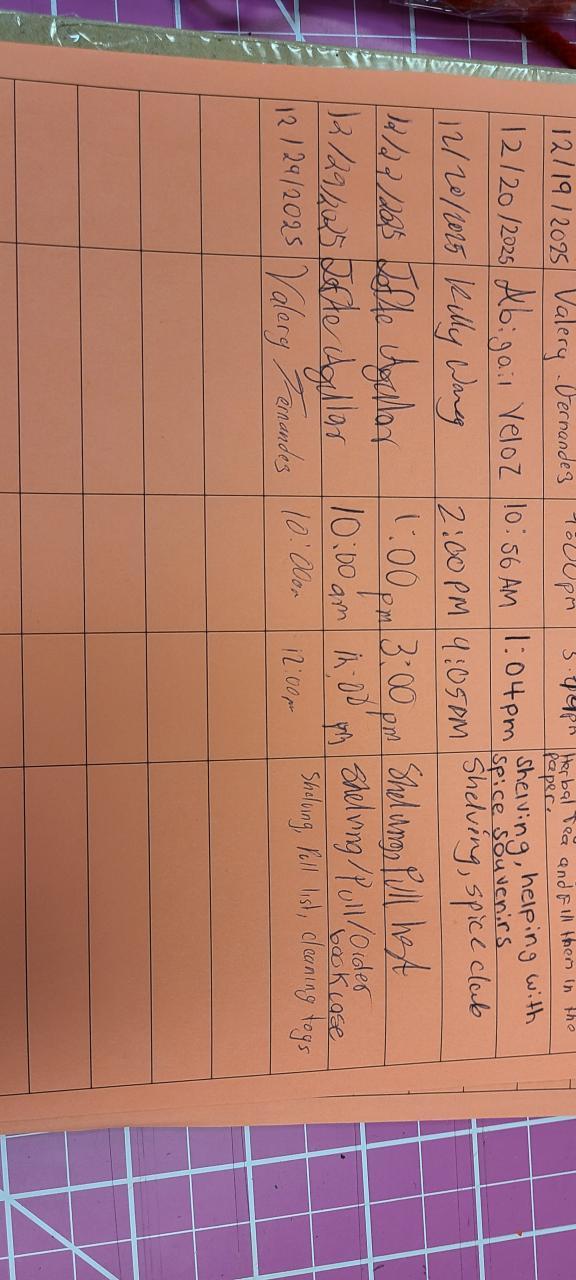 12/19/2025 Valery Dernandes :00pm Herbal Tea and fill them in the
paper.
12/20/2025 Abigail Veloz 10:56 AM 1:04pm Shelving, helping with
spice souvenirs
12/20/2025 Kelly Wang 2:00PM 4:05PM Shelving, spice club
3:00 pm 1:00 pm Shelving,
12/29/2025 10:00 am Shelving/Pull/Order
bookcase
12/29/2025 Valery 10:00am 12:00pm Shelving, Pull list, cleaning toys